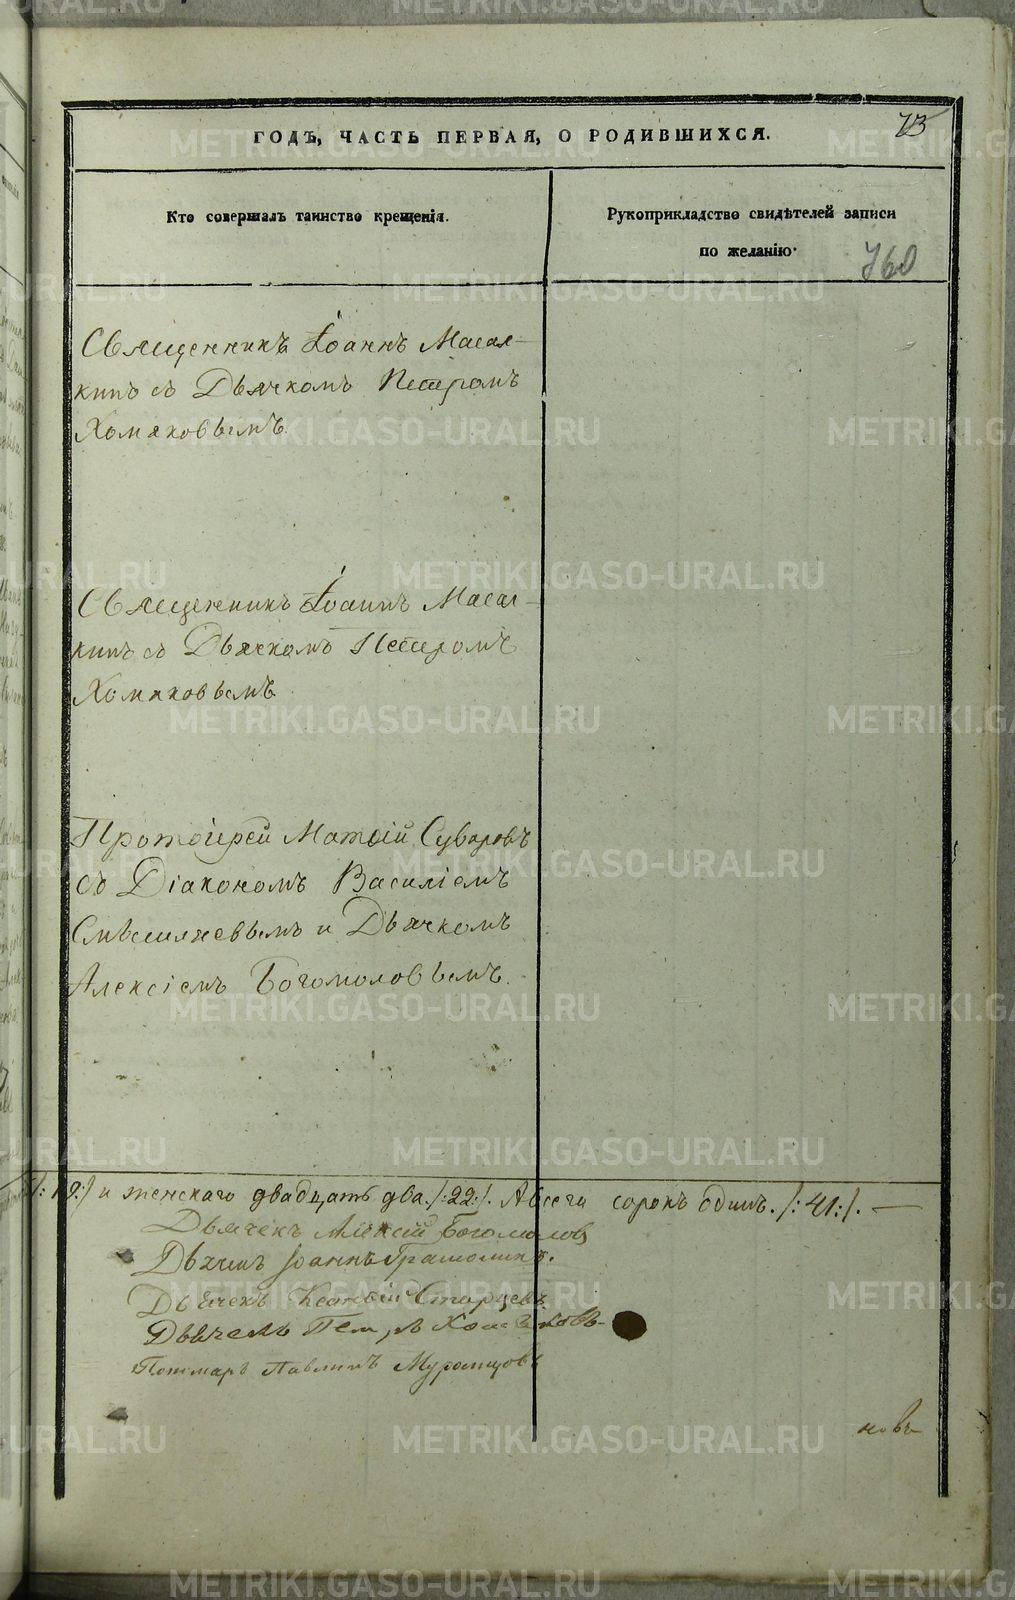 73
ГОДЪ, ЧАСТЬ ПЕРВАЯ, О РОДИВШИХСЯ.
Кто совершалъ таинство крещенія.
Рукоприкладство свидѣтелей записи
по желанію·
760
Священникъ Іоаннъ Масал-
кинъ съ Дьячкомъ Петромъ
Хомяковымъ
Священникъ Іоаннъ Масал-
кинъ съ Дьячкомъ Петромъ
Хомяковымъ
Протоіерей Матѳій Суворовъ
съ Діакономъ Василіемъ
и Дьячкомъ
Алексіемъ Богомоловымъ.
/:19:/ и женскаго двадцать два /:22:/. А всего сорокъ одинъ. /:41:/. —
Дьячекъ Алексій Богомоловъ
Дьячекъ Іоаннъ Грамолинъ.
Дьячекъ Старцевъ
Дьячекъ Петръ Хомяковъ
Пономарь Павлинъ Муромцовъ
новъ
METRIKI.GASO-URAL.RU